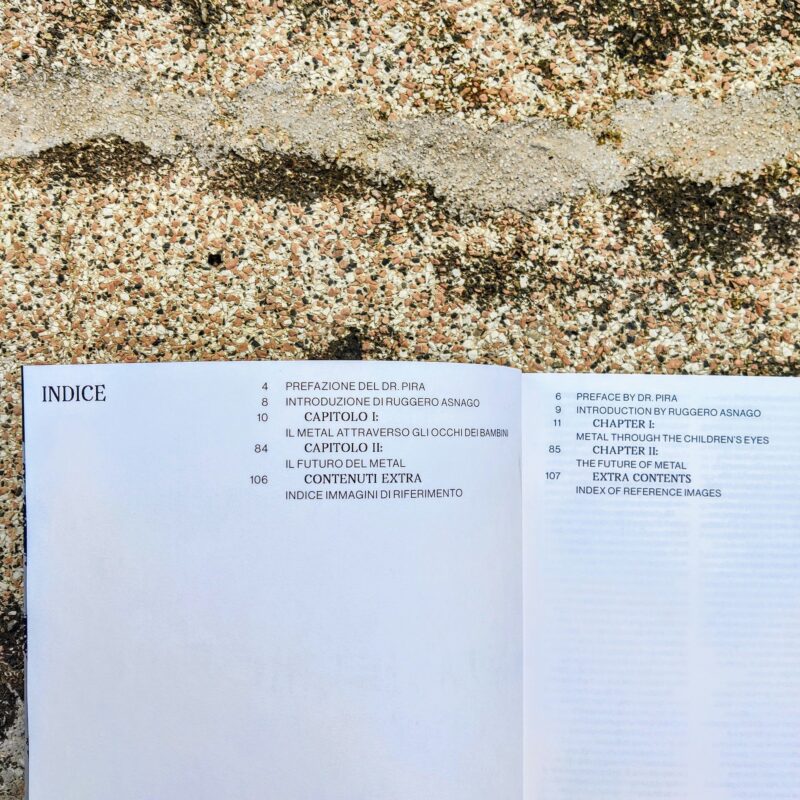 INDICE
4 PREFAZIONE DEL DR. PIRA
8 INTRODUZIONE DI RUGGERO ASNAGO
10 CAPITOLO I:
IL METAL ATTRAVERSO GLI OCCHI DEI BAMBINI
84 CAPITOLO II:
IL FUTURO DEL METAL
106 CONTENUTI EXTRA
INDICE IMMAGINI DI RIFERIMENTO
6 PREFACE BY DR. PIRA
9 INTRODUCTION BY RUGGERO ASNAGO
11 CHAPTER I:
METAL THROUGH THE CHILDREN'S EYES
85 CHAPTER II:
THE FUTURE OF METAL
107 EXTRA CONTENTS
INDEX OF REFERENCE IMAGES